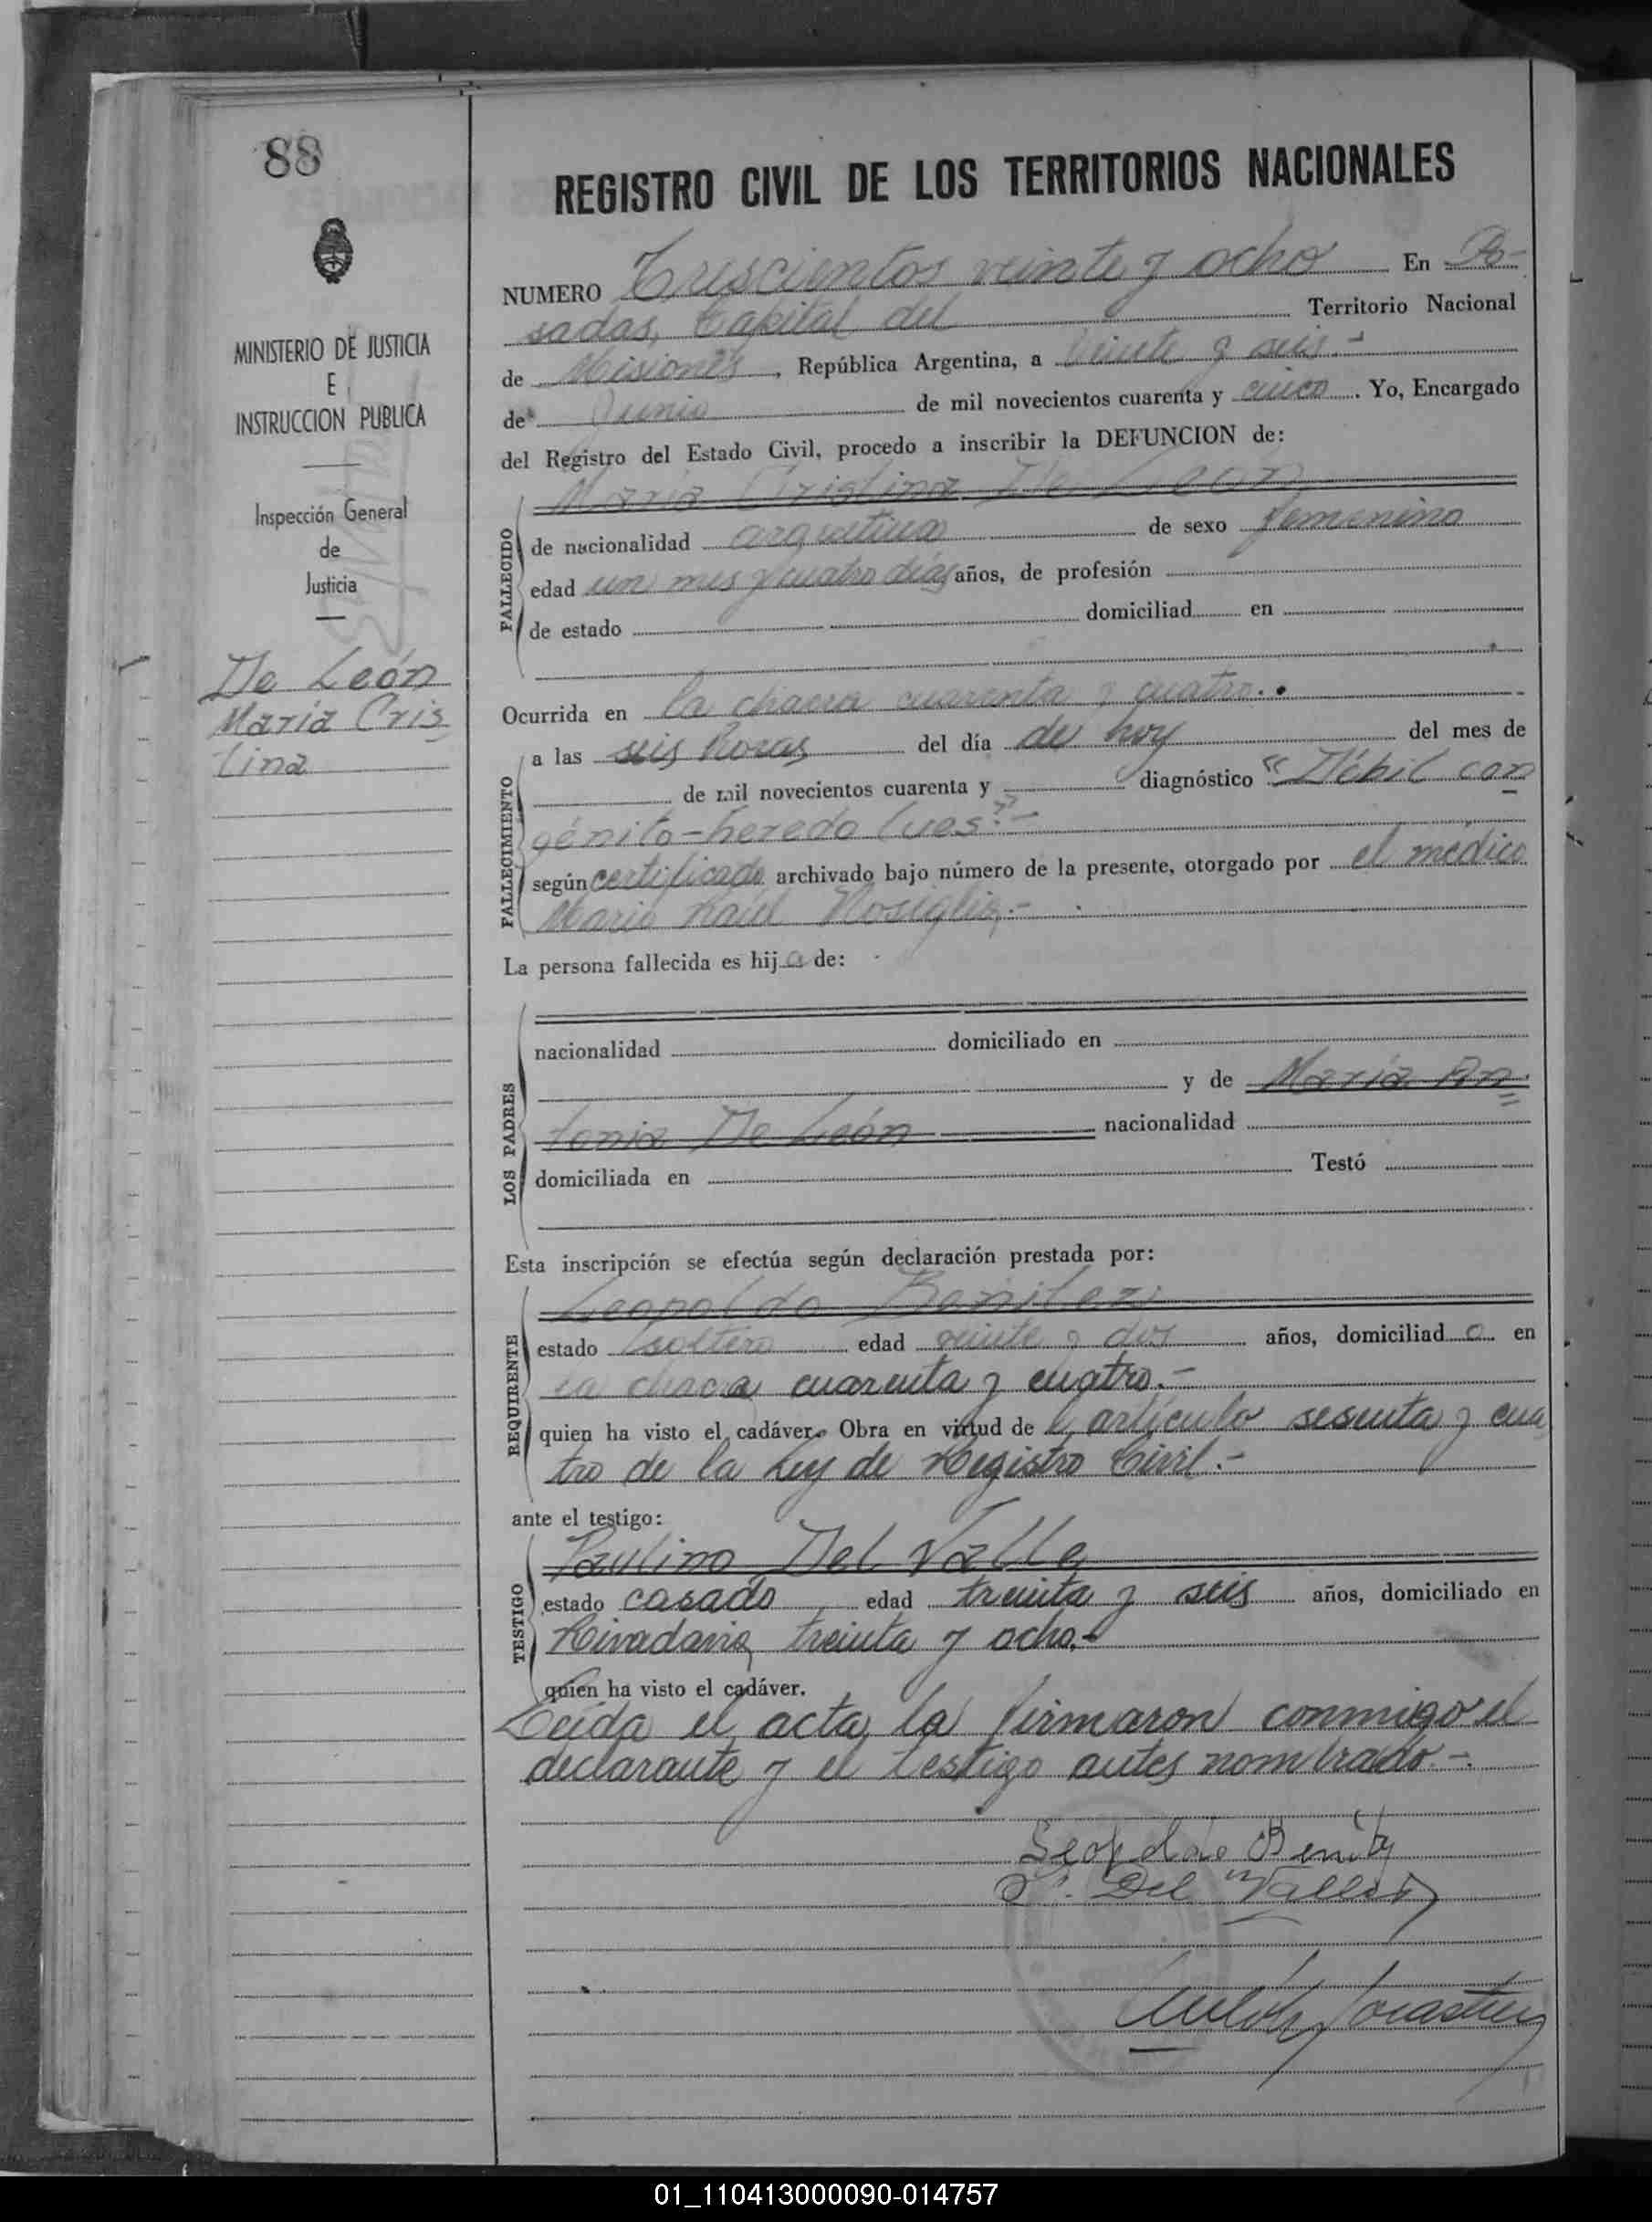 88
MINISTERIO DE JUSTICIA
E
INSTRUCCION PUBLICA
Inspección General
de
Justicia
De León
María Cris
tina
REGISTRO CIVIL DE LOS TERRITORIOS NACIONALES
NUMERO Trescientos veinte y ocho En Po-
sadas, Capital del Territorio Nacional
de Misiones, República Argentina, a veinte y seis.-
de Junio de mil novecientos cuarenta y cinco. Yo, Encargado
del Registro del Estado Civil, procedo a inscribir la DEFUNCION de:
María Cristina De León
FALLECIDO
de nacionalidad argentina de sexo femenino
edad un mes y cuatro días años, de profesión
de estado domiciliad en
Ocurrida en la chacra cuarenta y cuatro.
FALLECIMIENTO
a las seis horas del día de hoy del mes de
de mil novecientos cuarenta y diagnóstico "Débil con
génito-heredo lues?"-
según certificado archivado bajo número de la presente, otorgado por el médico
Mario Raúl .-
La persona fallecida es hija de:
LOS PADRES
nacionalidad domiciliado en
y de María An
tonia De León nacionalidad
domiciliada en Testó
Esta inscripción se efectúa según declaración prestada por:
REQUIRENTE
Leopoldo Benitez
estado soltero edad veinte y dos años, domiciliado en
la chacra cuarenta y cuatro.-
quien ha visto el cadáver. Obra en virtud del artículo sesenta y cua
tro de la Ley de Registro Civil.-
ante el testigo:
TESTIGO
Paulino Del Valle
estado casado edad treinta y seis años, domiciliado en
Rivadavia treinta y ocho.-
quien ha visto el cadáver.
Leída el acta, la firmaron conmigo el
declarante y el testigo antes nombrado.-
Leopoldo Benitez
P. Del Valle
01_110413000090-014757